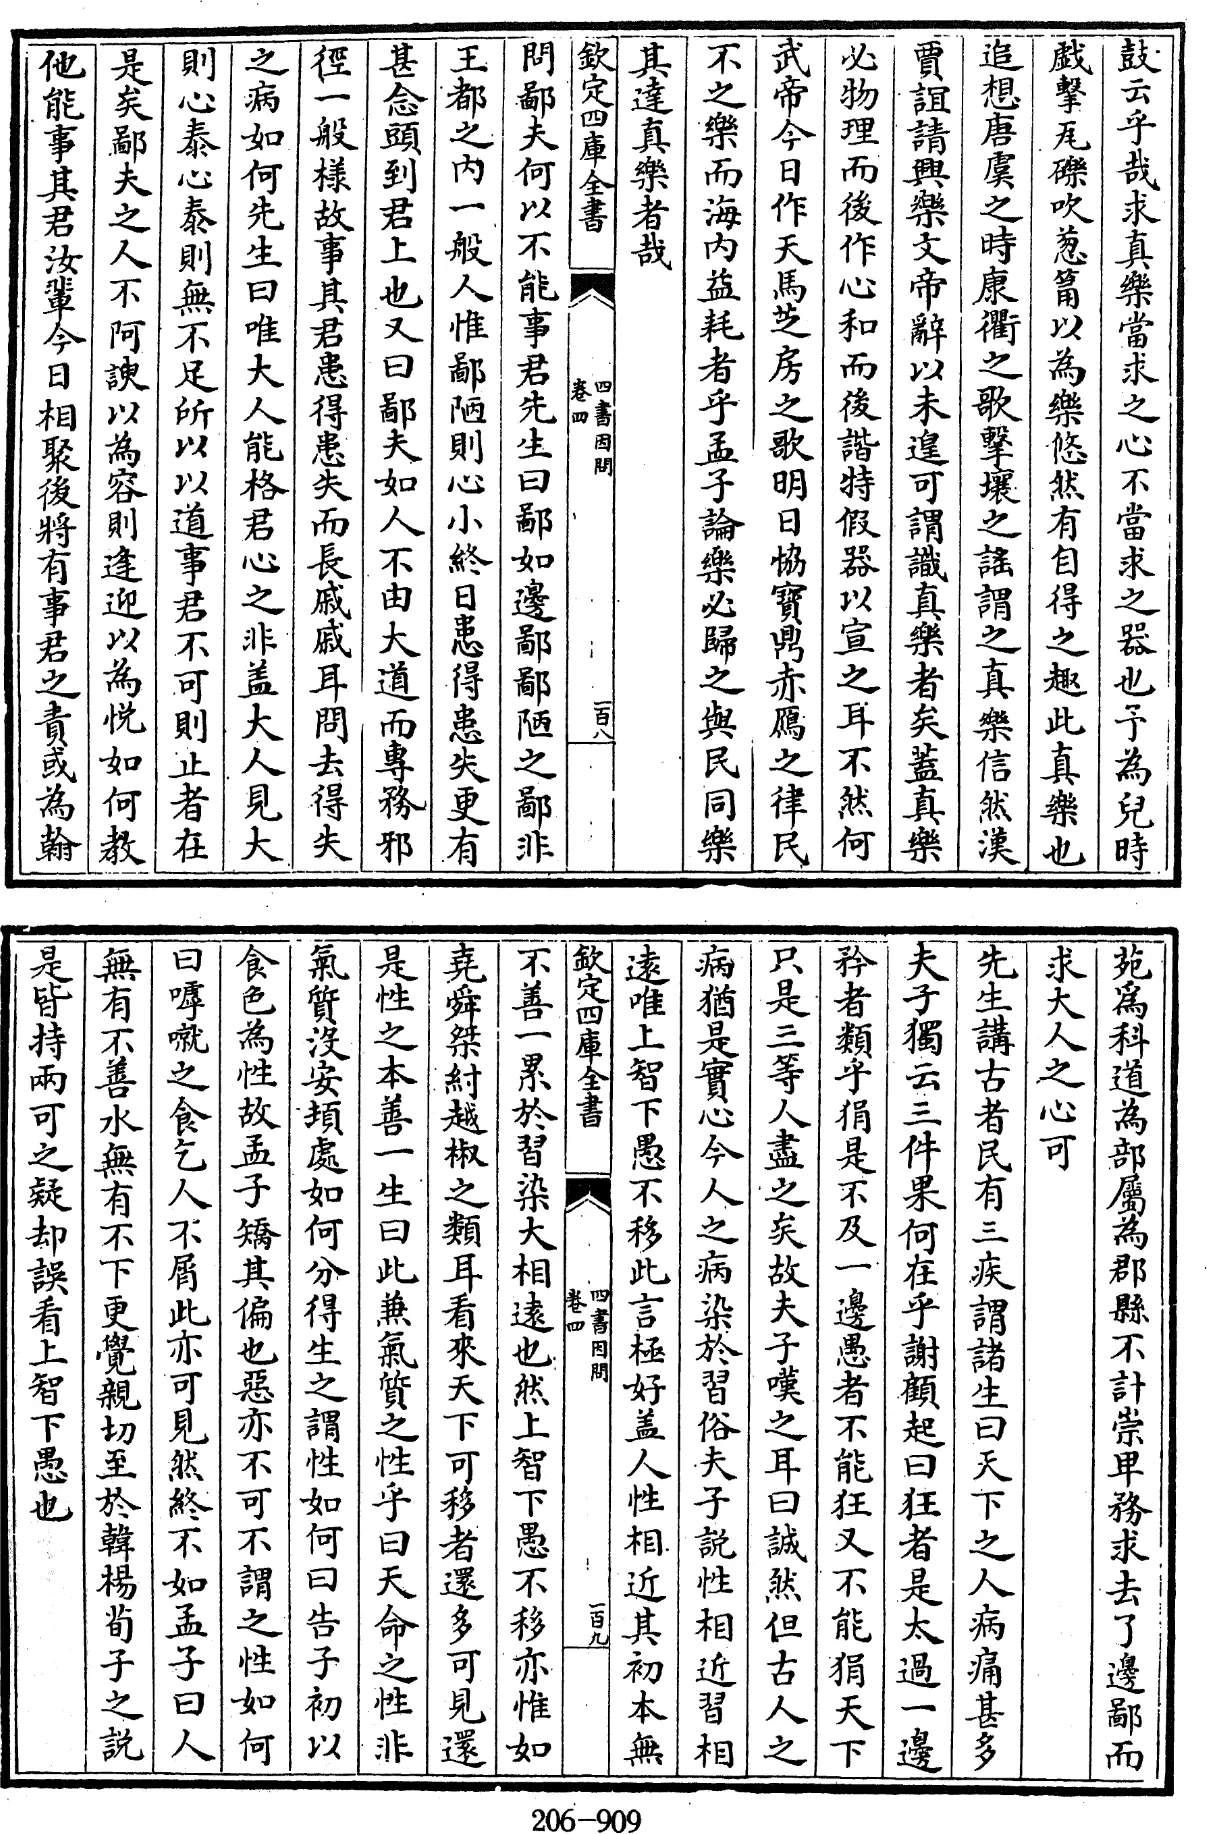 鼓云乎哉求真樂當求之心不當求之器也予為兒時
戲擊瓦礫吹葱篇以為樂悠然有自得之趣此真樂也
追想唐虞之時康衢之歌擊壤之謠謂之真樂信然漢
賈誼請興樂文帝辭以未遑可謂識真樂者矣蓋真樂
必物理而後作心和而後諧特假器以宣之耳不然何
武帝今日作天馬芝房之歌明日恊寶鼎赤鴈之律民
不之樂而海内益耗者乎孟子論樂必歸之與民同樂
其達真樂者哉
欽定四庫全書
四書因問
卷四
一百八
問鄙夫何以不能事君先生曰鄙如邊鄙鄙陋之鄙非
王都之内一般人惟鄙陋則心小終日患得患失更有
甚念頭到君上也又曰鄙夫如人不由大道而專務邪
徑一般樣故事其君患得患失而長戚戚耳問去得失
之病如何先生曰唯大人能格君心之非盖大人見大
則心泰心泰則無不足所以以道事君不可則止者在
是矣鄙夫之人不阿諛以為容則逢迎以為悦如何教
他能事其君汝輩今日相聚後將有事君之責或為翰
苑為科道為部屬為郡縣不計崇卑務求去了邊鄙而
求大人之心可
先生講古者民有三疾謂諸生曰天下之人病痛甚多
夫子獨云三件果何在乎謝顧起曰狂者是太過一邊
矜者類乎狷是不及一邊愚者不能狂又不能狷天下
只是三等人盡之矣故夫子嘆之耳曰誠然但古人之
病猶是實心今人之病染於習俗夫子說性相近習相
遠唯上智下愚不移此言極好盖人性相近其初本無
欽定四庫全書
四書因問
卷四
一百九
不善一累於習染大相遠也然上智下愚不移亦惟如
堯舜桀紂越椒之類耳看來天下可移者還多可見還
是性之本善一生曰此兼氣質之性乎曰天命之性非
氣質沒安頓處如何分得生之謂性如何曰告子初以
食色為性故孟子矯其偏也惡亦不可不謂之性如何
曰嘑噈之食乞人不屑此亦可見然終不如孟子曰人
無有不善水無有不下更覺親切至於韓楊荀子之說
是皆持兩可之疑却誤看上智下愚也
206-909